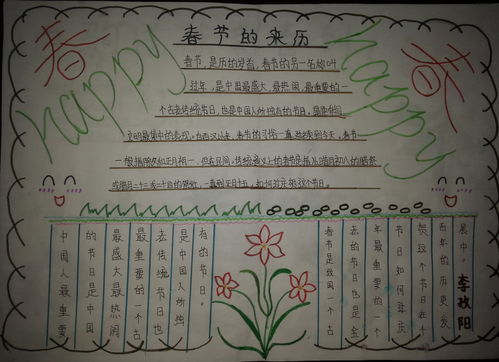 春
春节的来历
春
happy
happy
春节,是历的岁首,春节的另一名称叫
过年,是中国最盛大、最热闹、最重要的一
个古老传统节日,也是中国人所独有的节日。是中华
文明最集中的表现。自西汉以来,春节的习俗一直延续到今天。春节
一般指除夕和正月初一。但在民间,传统意义上的春节是指从腊月初八的腊祭
或腊月二十三或二十四的祭灶,一直到正月十五,如何庆贺这个节日。
展中。
百年的历史发
贺这个节日在千
节日如何庆
年最重要的一个
去的节日也是全
春节是我国一个古
有的节日。
是中国人所独
去传统节日也
最重要的一个古
最盛大最热闹
的节日也是中国
中国人最重要
李孜阳